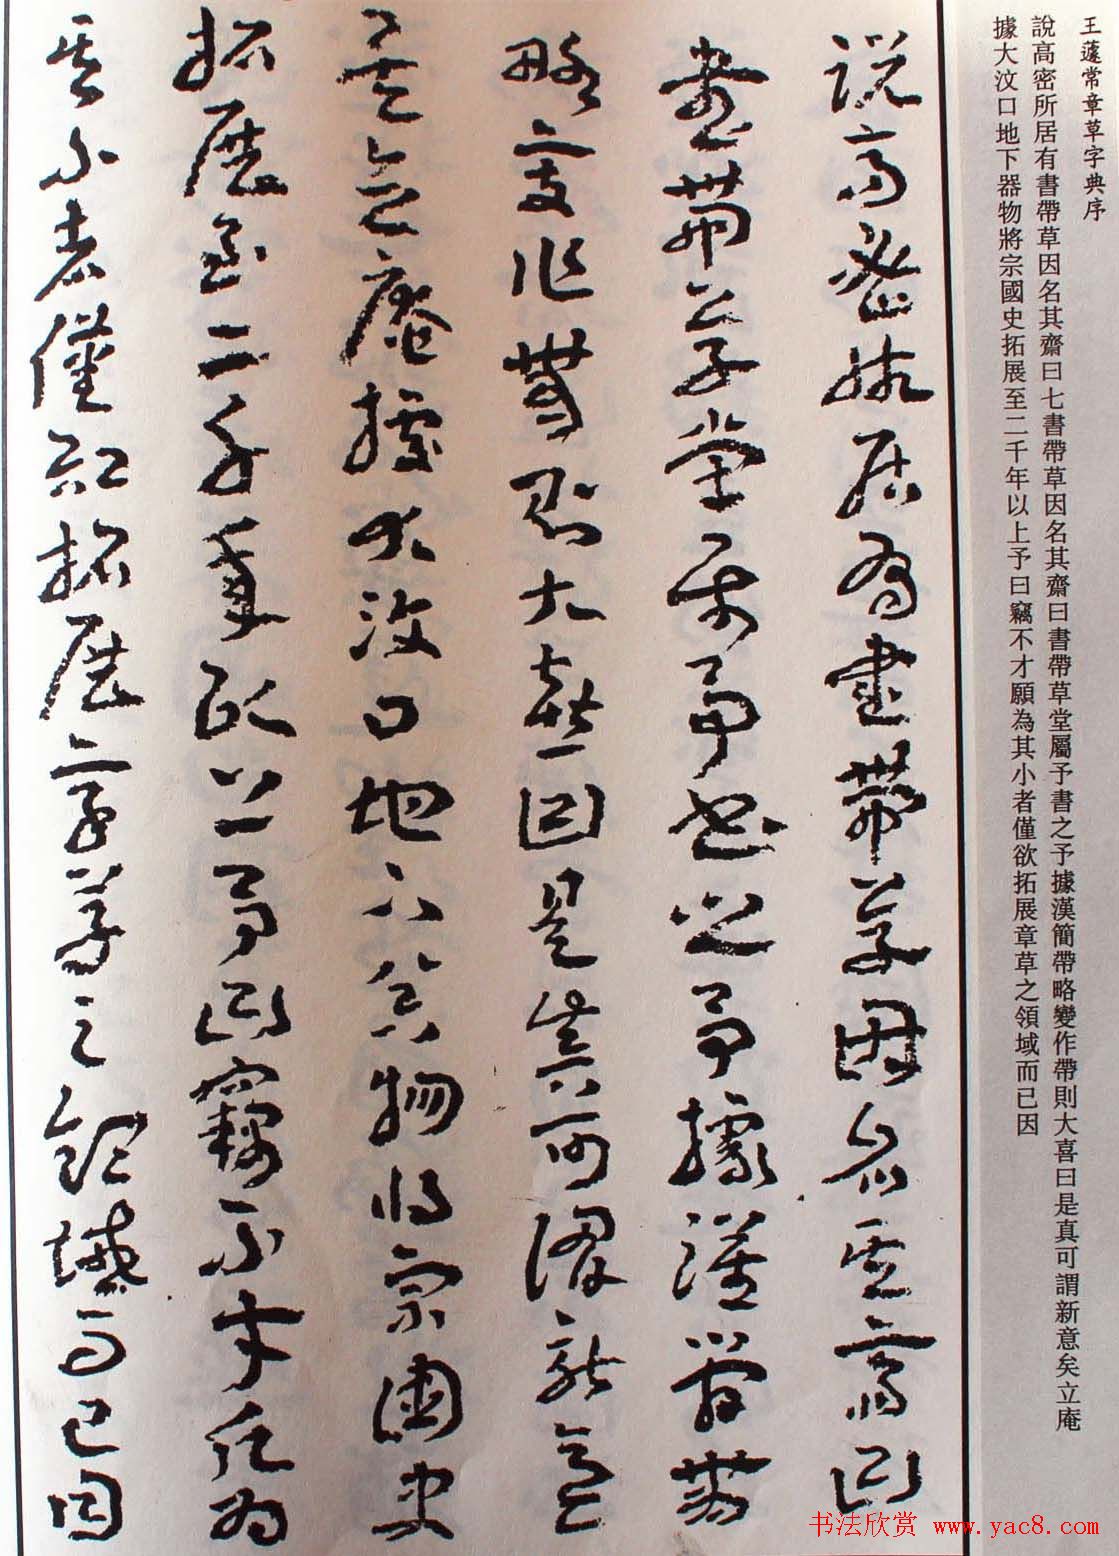 王蘧常章草字典序
說高密所居有書帶草因名其齋曰七書帶草因名其齋曰書帶草堂屬予書之予據漢簡帶略變作帶則大喜曰是真可謂新意矣立庵
據大汶口地下器物將宗國史拓展至二千年以上予曰竊不才願為其小者僅欲拓展章草之領域而已因
說高密所居有書帶草因名其齋曰
書帶草堂屬予書之予據漢簡帶
略變作帶則大喜曰是真可謂新意
矣立庵據大汶口地下器物將宗國史
拓展至二千年以上予曰竊不才願為
其小者僅欲拓展章草之領域而已因
书法欣赏 www.yac8.com